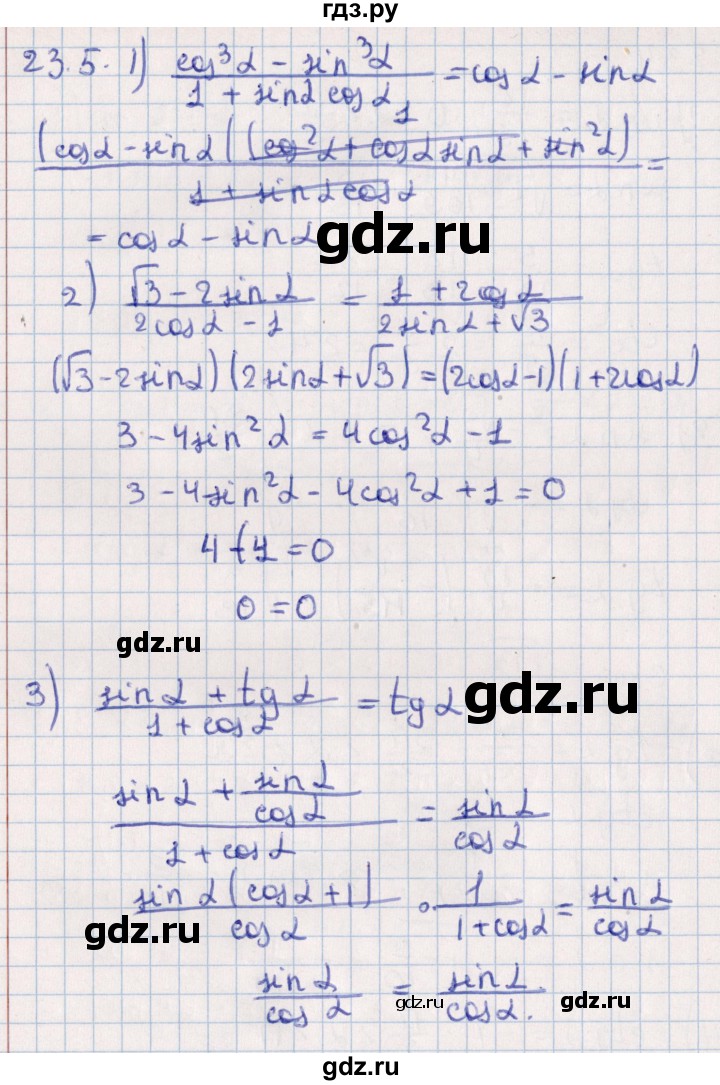 гдз.ру
23.5. 1) (cos³α - sin³α)/(1 + sinα cosα) = cosα - sinα
1
((cosα - sinα)(cos²α + cosα sinα + sin²α))/(1 + sinα cosα) =
= cosα - sinα
gdz.ru
2) (√3 - 2sinα)/(2cosα - 1) = (1 + 2cosα)/(2sinα + √3)
(√3 - 2sinα)(2sinα + √3) = (2cosα - 1)(1 + 2cosα)
3 - 4sin²α = 4cos²α - 1
3 - 4sin²α - 4cos²α + 1 = 0
4 - 4 = 0
0 = 0
gdz.ru
3) (sinα + tgα)/(1 + cosα) = tgα
gdz.ru
(sinα + sinα/cosα)/(1 + cosα) = sinα/cosα
(sinα(cosα + 1))/cosα · 1/(1 + cosα) = sinα/cosα
gdz.ru
sinα/cosα = sinα/cosα.
gdz.ru
gdz.ru
gdz.ru